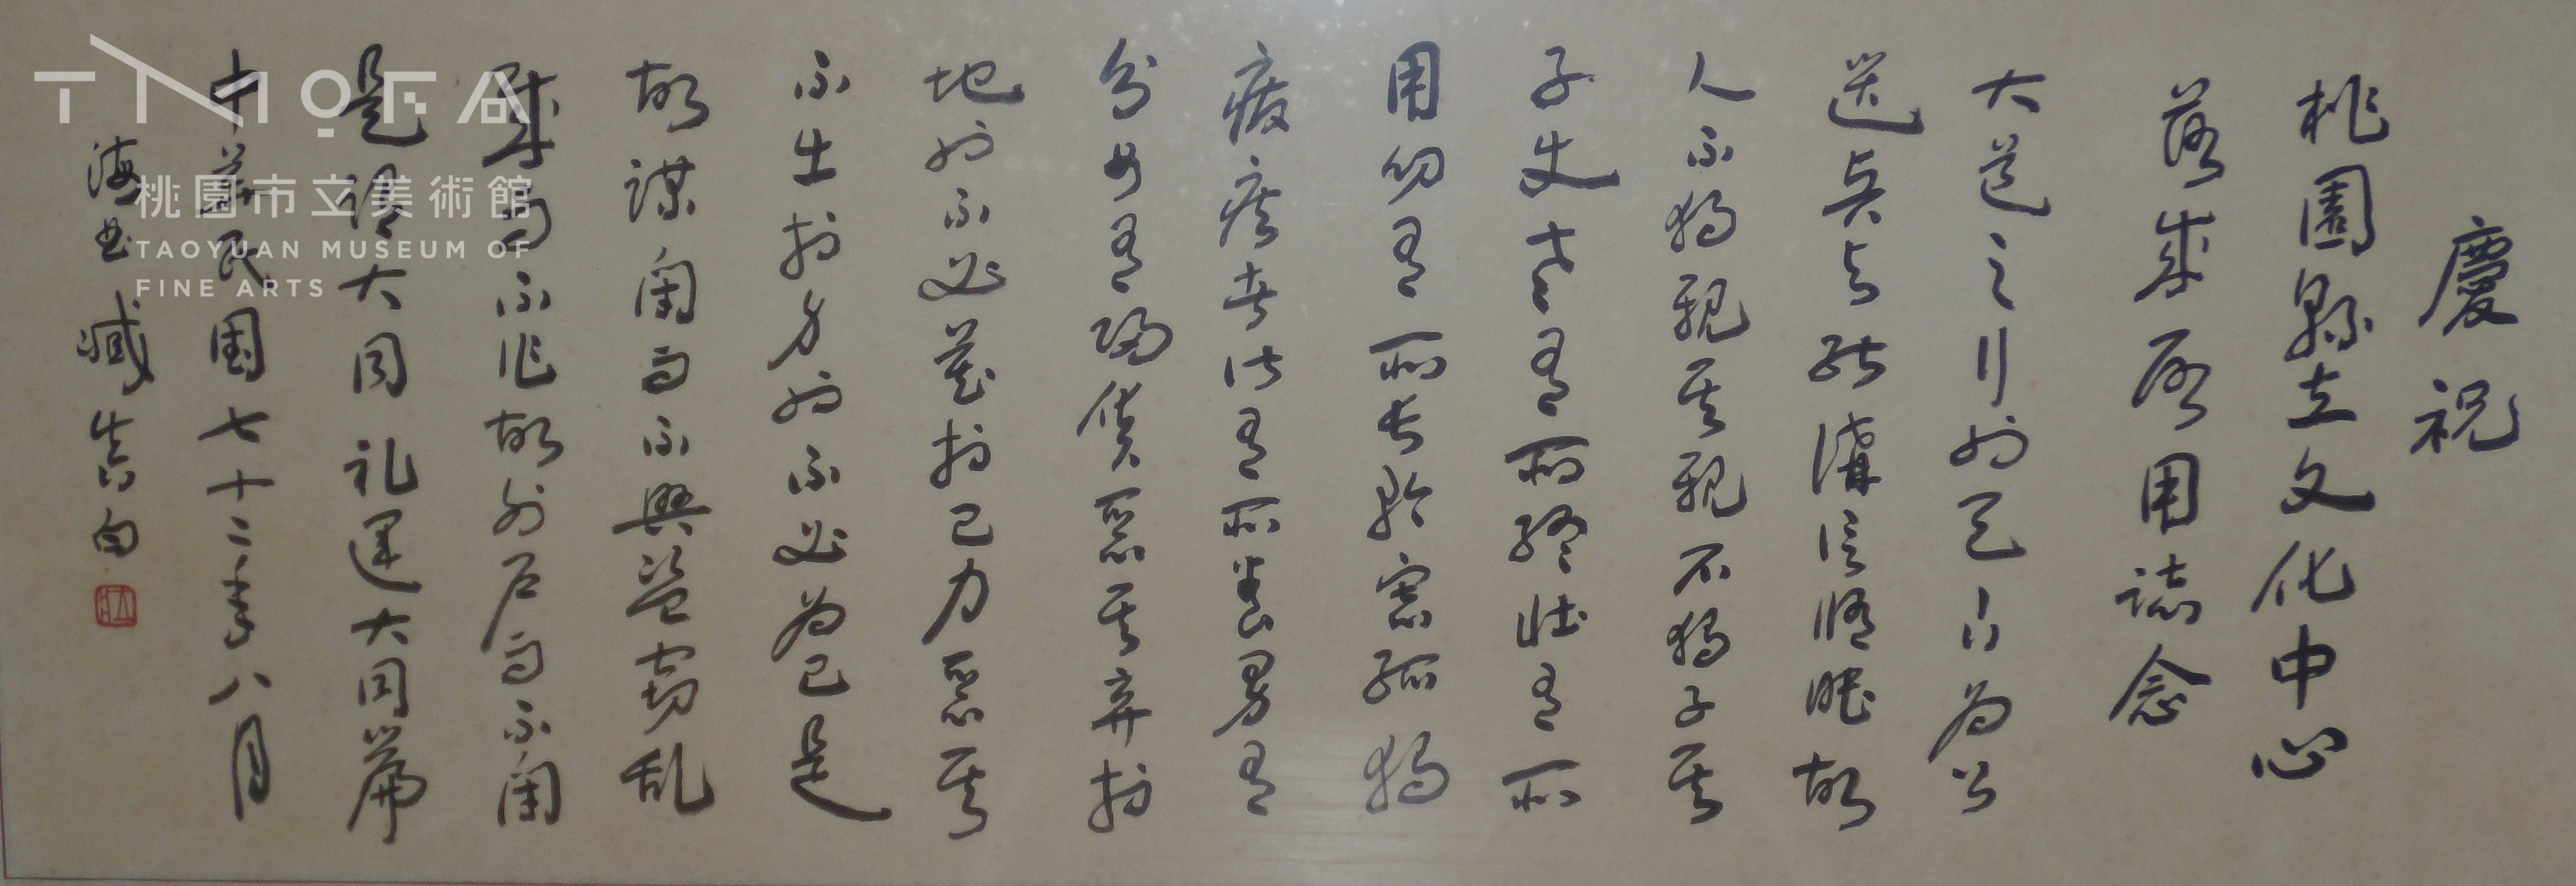 慶祝
桃園縣立文化中心
落成啟用誌念
大道之行也天下為公
選賢与能講信修睦故
人不獨親其親不獨子其
子使老有所終壯有所
用幼有所長矜寡孤獨
廢疾者皆有所養男有
分女有歸貨惡其棄於
地也不必藏於己力惡其
不出於身也不必為己是
故謀閉而不興盜竊乱
賊而不作故外戶而不閉
是謂大同礼運大同篇
中華民國七十二年八月
海曲臧
TMOFA
桃園市立美術館
TAOYUAN MUSEUM OF
FINE ARTS